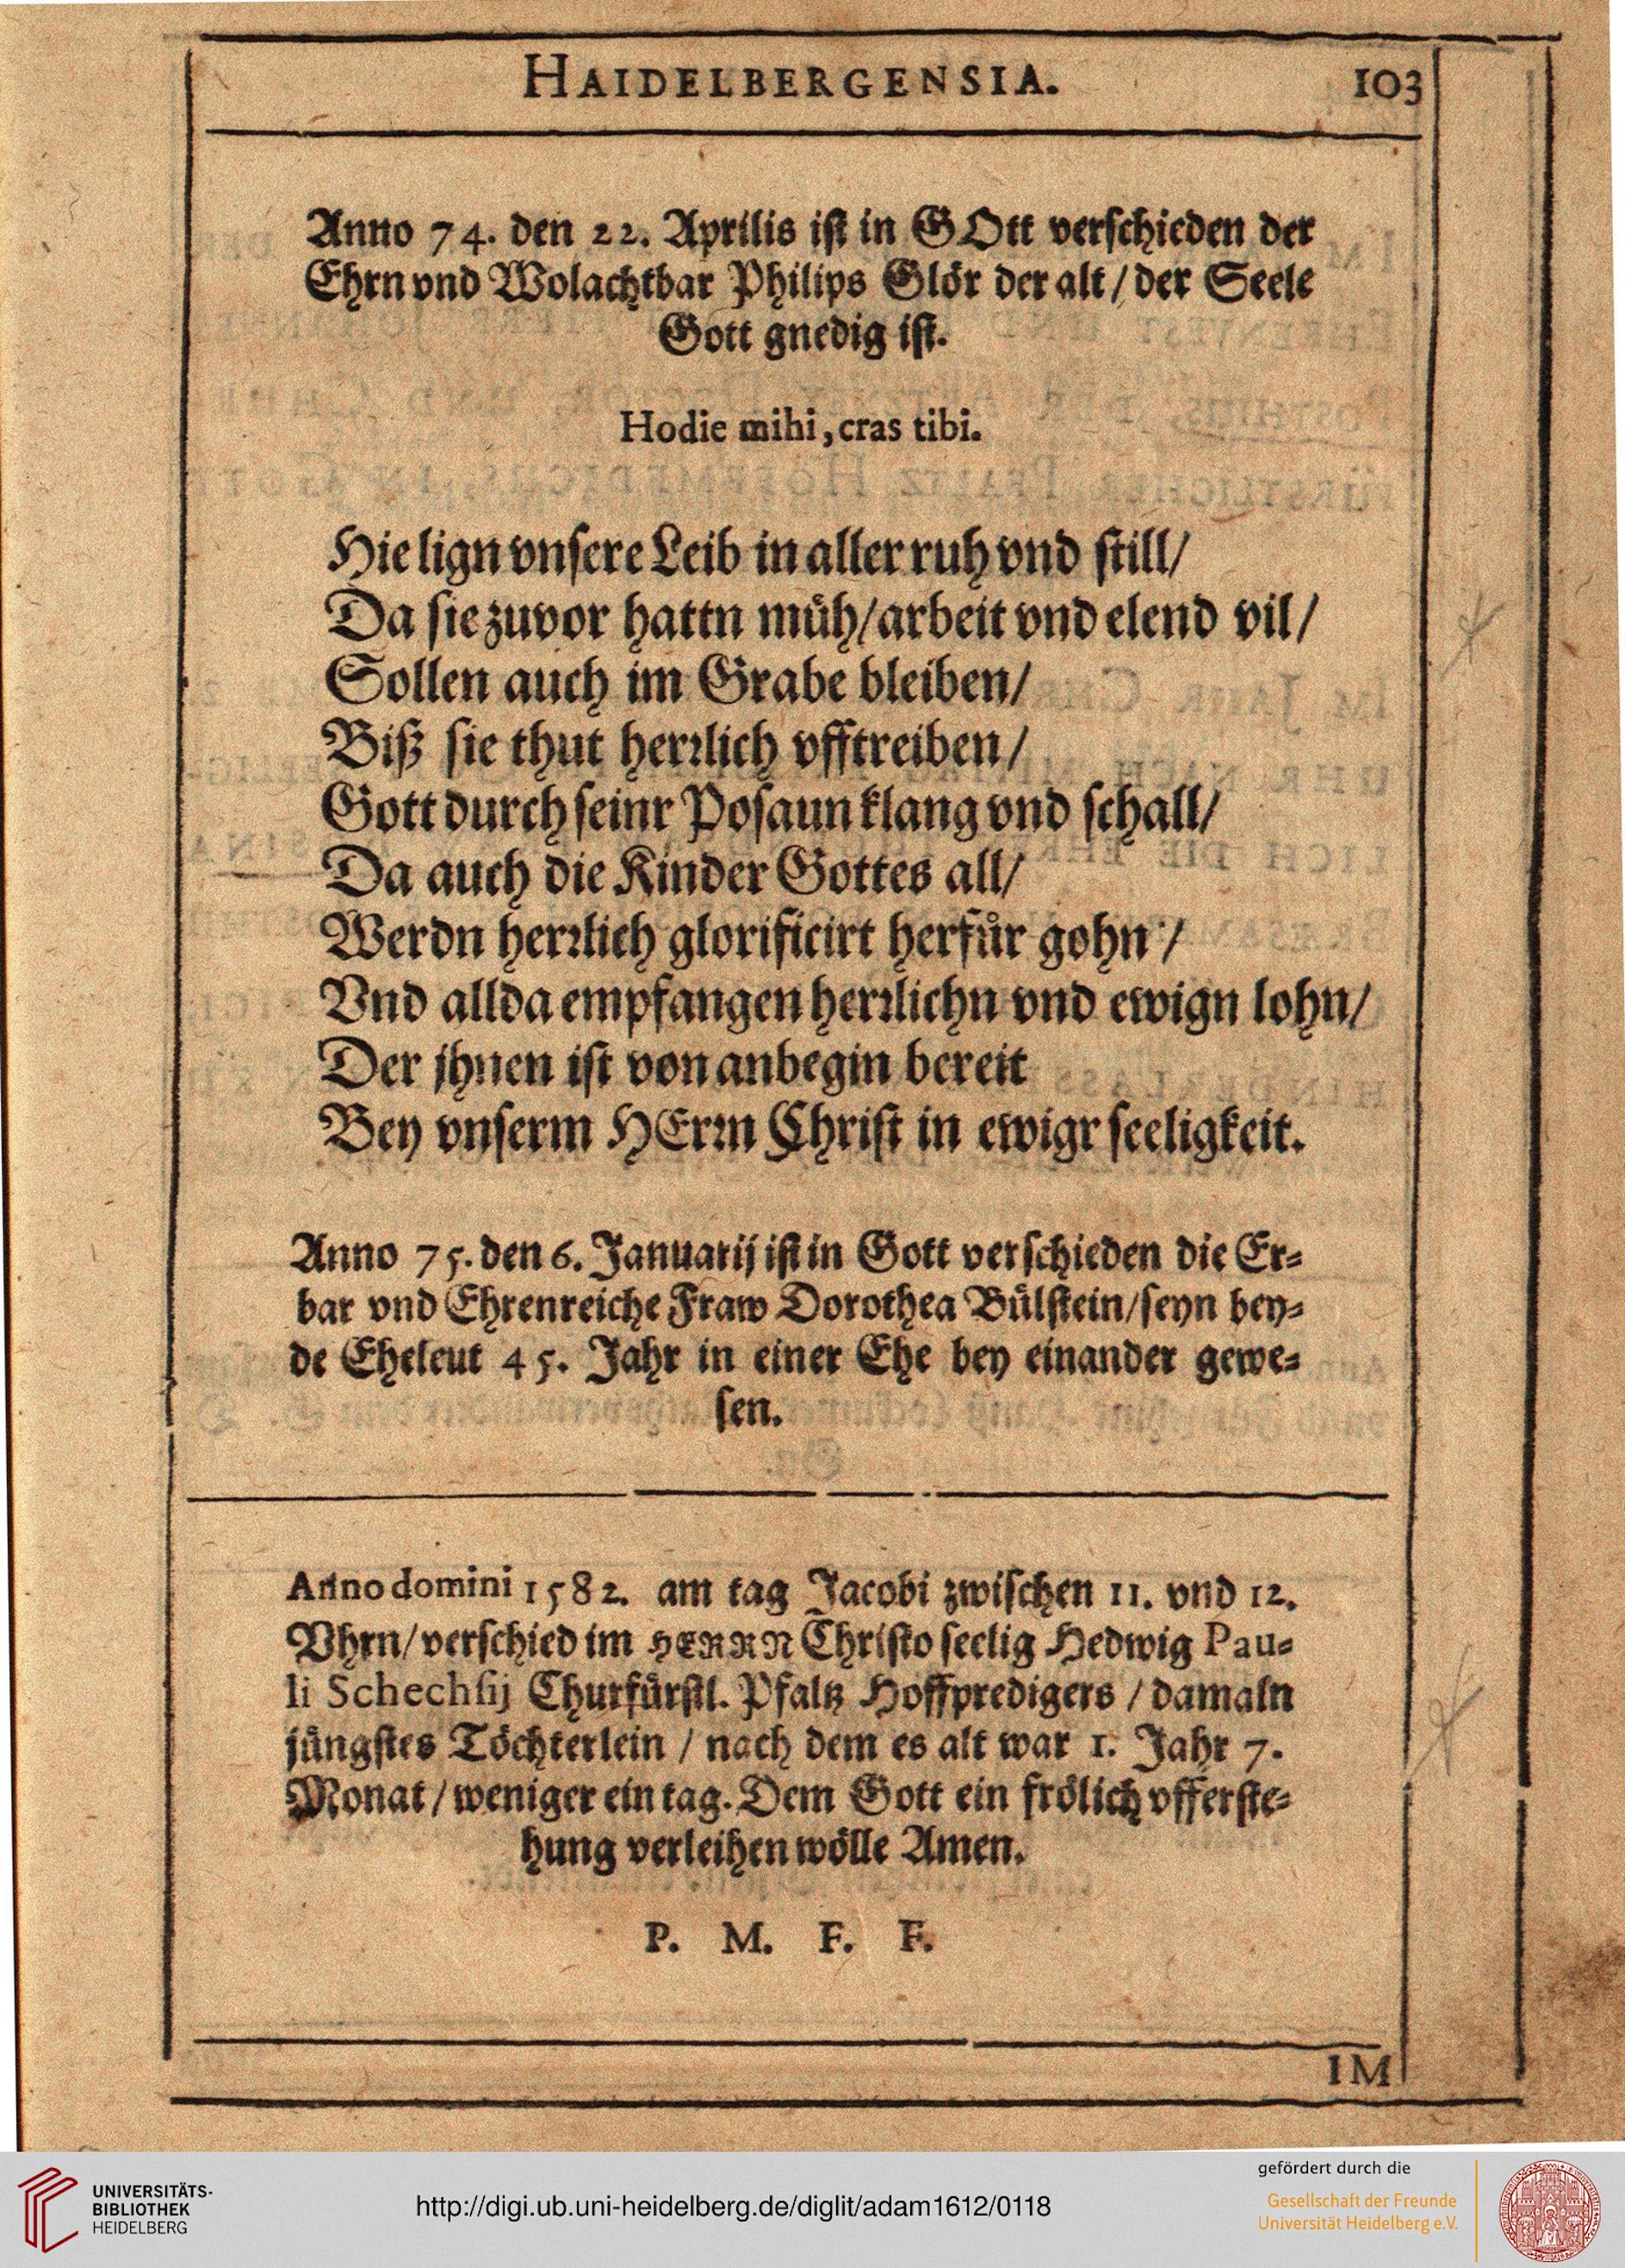 HAIDELBERGENSIA. 103
Anno 74. den 22. Aprilis ist in GOtt verschieden der
Ehrn vnd Wolachtbar Philips Glör der alt / der Seele
Gott gnedig ist.
Hodie mihi, cras tibi.
Hie lign vnsere Leib in aller ruh vnd still /
Da sie zuvor hattn müh / arbeit vnd elend vil /
Sollen auch im Grabe bleiben /
Biß sie thut herrlich vfftreiben /
Gott durch seinr Posaun klang vnd schall /
Da auch die Kinder Gottes all /
Werdn herrlich glorificirt herfür gohn /
Vnd allda empfangen herrlichn vnd ewign lohn /
Der jhnen ist von anbegin bereit
Bey vnserm HErrn Christ in ewigr seeligkeit.
Anno 75. den 6. Januarij ist in Gott verschieden die Er-
bar vnd Ehrenreiche Fraw Dorothea Bülstein / seyn bey-
de Eheleut 45. Jahr in einer Ehe bey einander gewe-
sen.
Anno domini 1582. am tag Jacobi zwischen 11. vnd 12.
Vhrn / verschied im HERRN Christo seelig Hedwig Pau-
li Schechsij Churfürstl. Pfaltz Hoffpredigers / damaln
jüngstes Töchterlein / nach dem es alt war 1. Jahr 7.
Monat / weniger ein tag. Dem Gott ein frölich vfferste-
hung verleihen wölle Amen.
P. M. F. F.
IM
UNIVERSITÄTS-
BIBLIOTHEK
HEIDELBERG
http://digi.ub.uni-heidelberg.de/diglit/adam1612/0118
gefördert durch die
Gesellschaft der Freunde
Universität Heidelberg e.V.